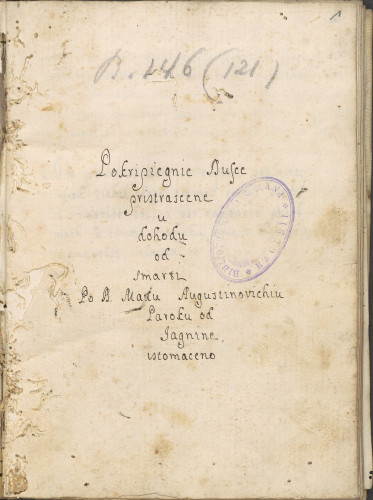 1
R. 146 (121)
Pokripiegnie Dusce
pristrascene
u
dohodu
od
smarti
Po B. Matu Augustinovichiu
Paroku od
Jagnine
istomaceno